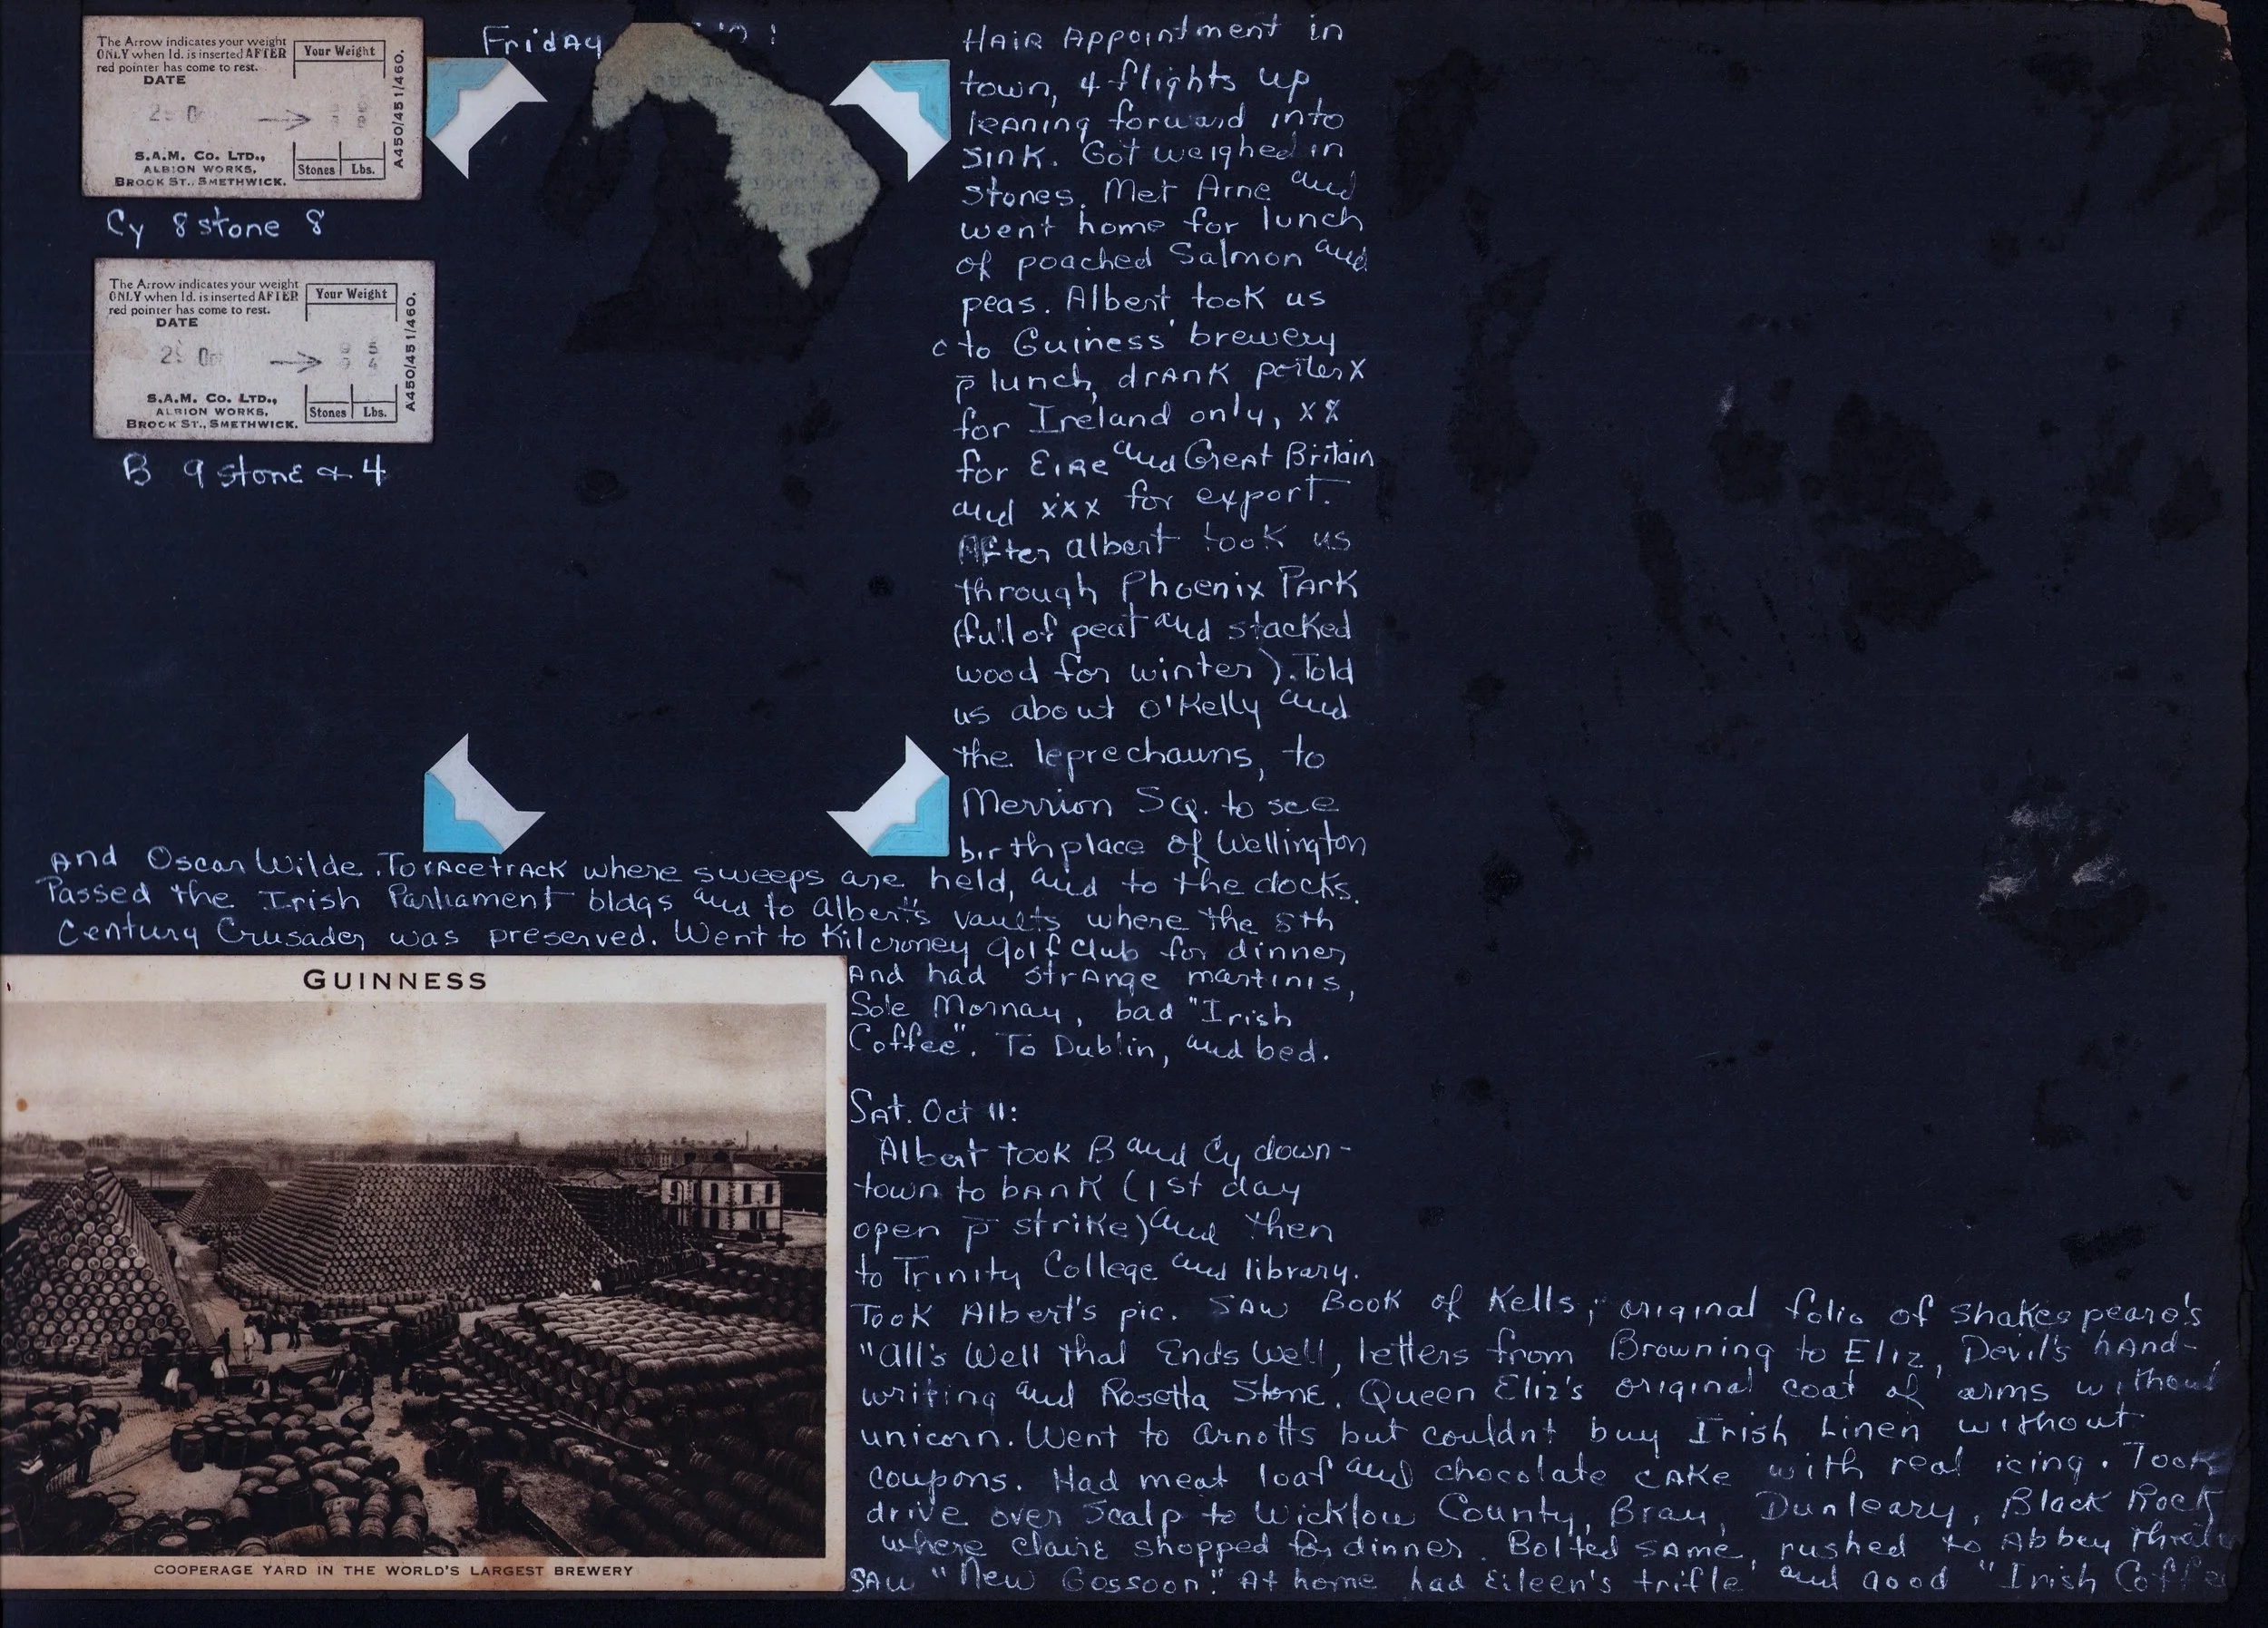 The Arrow indicates your weight
ONLY when 1d. is inserted AFTER
red pointer has come to rest.
DATE
Your Weight
S.A.M. Co. LTD.,
ALBION WORKS,
BROOK ST., SMETHWICK.
Stones Lbs.
A450/451/460.
Cy 8 stone 8
The Arrow indicates your weight
ONLY when 1d. is inserted AFTER
red pointer has come to rest.
DATE
Your Weight
S.A.M. Co. LTD.,
ALBION WORKS,
BROOK ST., SMETHWICK.
Stones Lbs.
A450/451/460.
B 9 stone & 4
Friday
Hair Appointment in
town, 4 flights up
leaning forward into
sink. Got weighed in
stones. Met Arne and
went home for lunch
of poached Salmon and
peas. Albert took us
to Guiness' brewery
p̄ lunch, drank porter X
for Ireland only, XX
for Eire and Great Britain
and xxx for export.
After albert took us
through Phoenix Park
(full of peat and stacked
wood for winter). Told
us about O'Kelly and
the leprechauns, to
Merrion Sq. to see
birthplace of Wellington
And Oscar Wilde. To racetrack where sweeps are held, and to the docks.
Passed the Irish Parliament bldgs and to albert's vaults where the 8th
Century Crusader was preserved. Went to Kilcroney golf club for dinner
And had strange martinis,
Sole Mornay, bad "Irish
Coffee". To Dublin, and bed.
Sat. Oct 11:
Albert took B and Cy down-
town to bank (1st day
open p̄ strike) and then
to Trinity College and library.
Took Albert's pic. Saw Book of Kells, original folio of Shakespeare's
"All's Well that Ends Well, letters from Browning to Eliz, Devil's hand-
writing and Rosetta Stone. Queen Eliz's original coat of arms without
unicorn. Went to Arnotts but couldnt buy Irish Linen without
coupons. Had meat loaf and chocolate cake with real icing. Took
drive over Scalp to Wicklow County, Bray, Dunleary, Black Rock
where Claire shopped for dinner. Bolted same, rushed to Abbey
Saw "New Gossoon". At home had Eileen's trifle and good "Irish Coffee
GUINNESS
COOPERAGE YARD IN THE WORLD'S LARGEST BREWERY